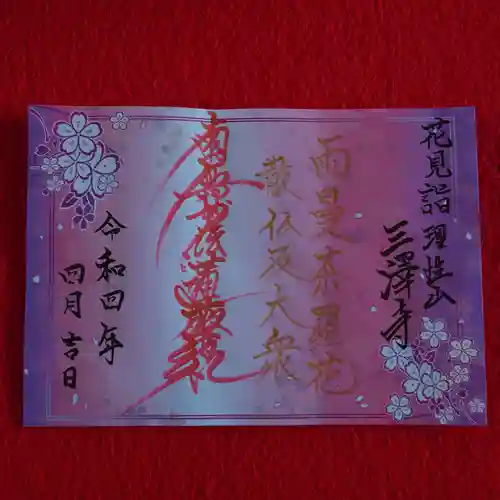 花見詣 理性山
三澤寺
雨曼荼羅花
散仏及大衆
南無妙法蓮華経
令和四年
四月吉日